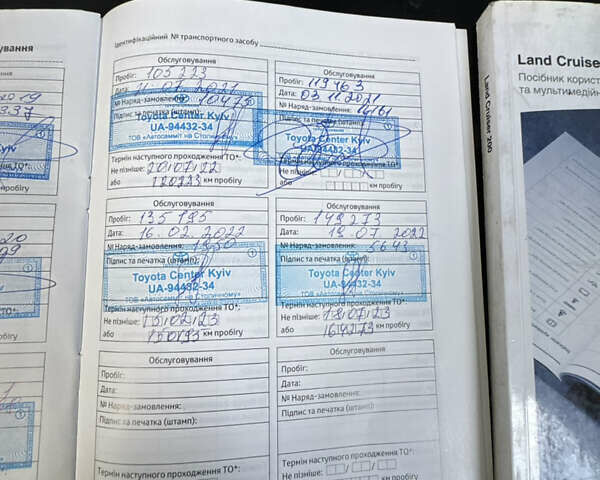 Ідентифікаційний № транспортного засобу
Обслуговування
Пробіг: 105 223
Дата: 11.07.2021
№ Наряд-замовлення: 10475
Підпис та печатка (штамп):
Toyota Center Kyiv
UA-94432-34
ТОВ «Автосамміт на Столичному»
Термін наступного проходження ТО*:
Не пізніше: 20/07/22
або 120223 км пробігу
Обслуговування
Пробіг: 119 463
Дата: 03.11.2021
№ Наряд-замовлення:
Підпис та печатка (штамп)
Toyota Center Kyiv
UA-94432-34
Термін наступного проходження ТО*:
Не пізніше:
або км пробігу
Обслуговування
Пробіг: 135 195
Дата: 16.02.2022
№ Наряд-замовлення: 1850
Підпис та печатка (штамп):
Toyota Center Kyiv
UA-94432-34
ТОВ «Автосамміт на Столичному»
Термін наступного проходження ТО*:
Не пізніше: 15/02/23
або 150195 км пробігу
Обслуговування
Пробіг: 149 273
Дата: 19.07.2022
№ Наряд-замовлення: 5643
Підпис та печатка (штамп):
Toyota Center Kyiv
UA-94432-34
Термін наступного проходження ТО*:
Не пізніше: 18/07/23
або 164273 км пробігу
Обслуговування
Пробіг:
Дата:
№ Наряд-замовлення:
Підпис та печатка (штамп):
Термін наступного проходження ТО*:
Обслуговування
Пробіг:
Дата:
№ Наряд-замовлення:
Підпис та печатка (штамп):
Термін наступного проходження ТО*:
Не пізніше:
або км пробігу
Land Cruiser 200
Land Cruise
Посібник корист
та мультимедійн